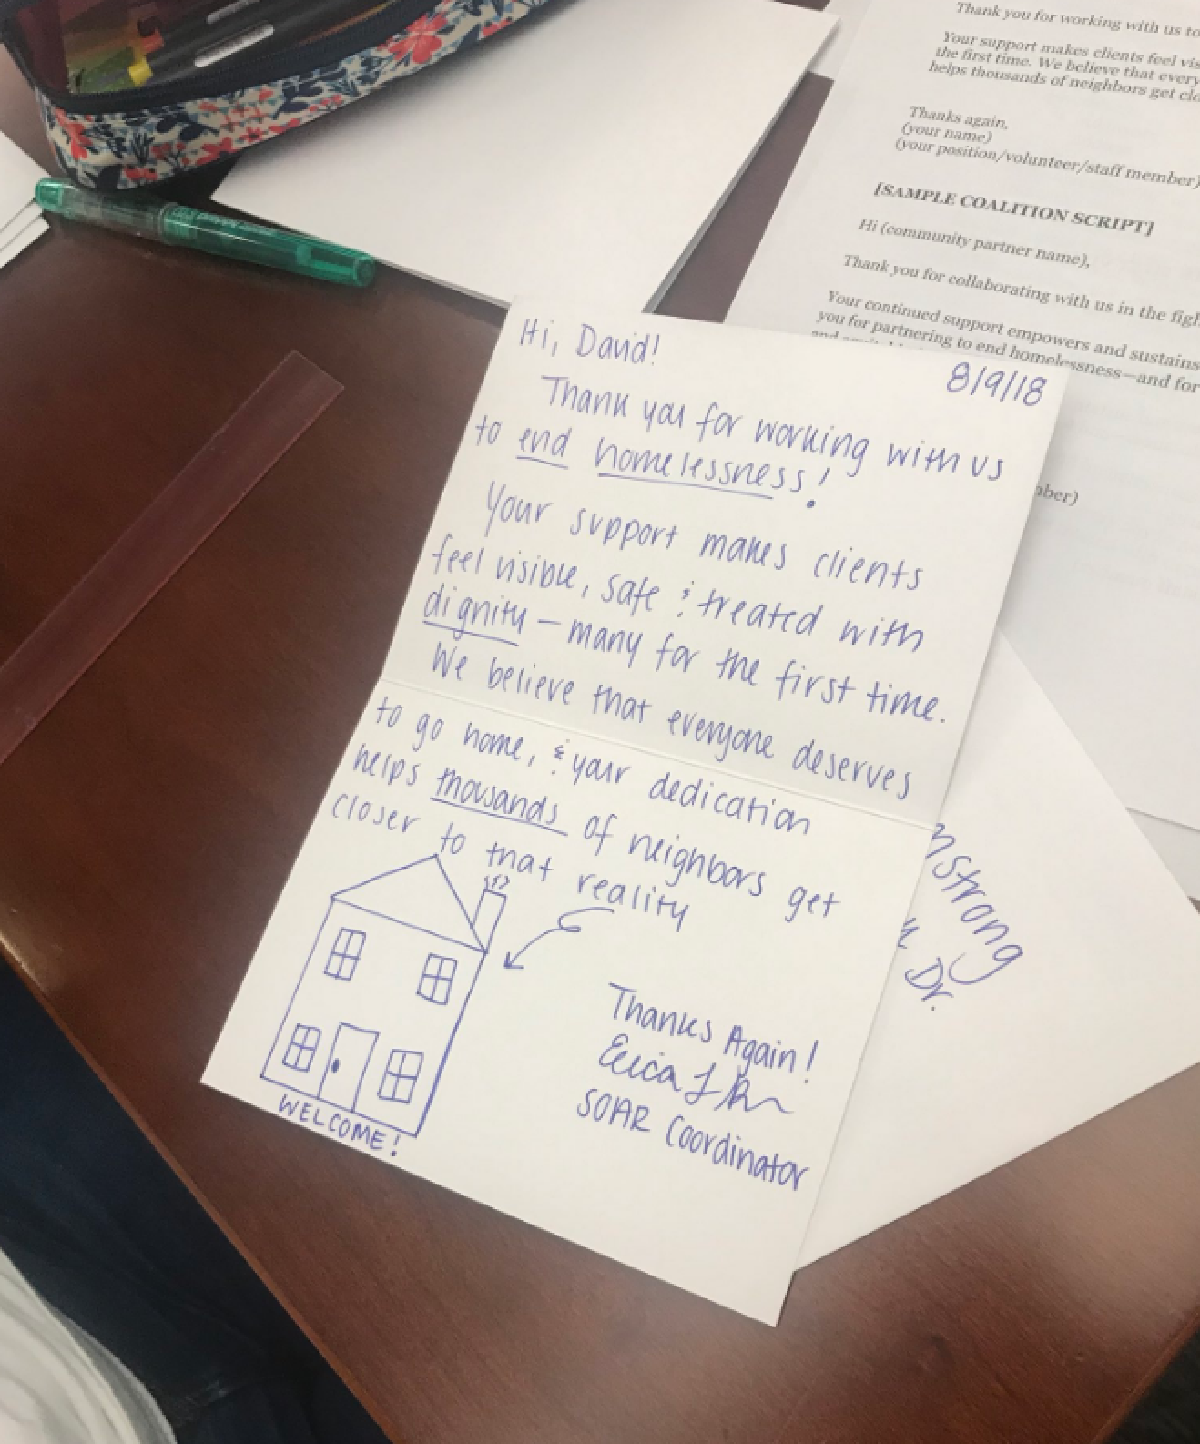 Thank you for working with us to
Your support makes clients feel
the first time. We believe that every
helps thousands of neighbors get
Thanks again,
(your name)
(your position/volunteer/staff member)
[SAMPLE COALITION SCRIPT]
Hi (community partner name),
Thank you for collaborating with us in the
Your continued support empowers and sustains
you for partnering to end homelessness—and for
Hi, David!
8/9/18
Thank you for working with us
to end homelessness!
Your support makes clients
feel visible, safe & treated with
dignity – many for the first time.
We believe that everyone deserves
to go home, & your dedication
helps thousands of neighbors get
closer to that reality
WELCOME!
Thanks Again!
Erica L
SOAR Coordinator
Dr.